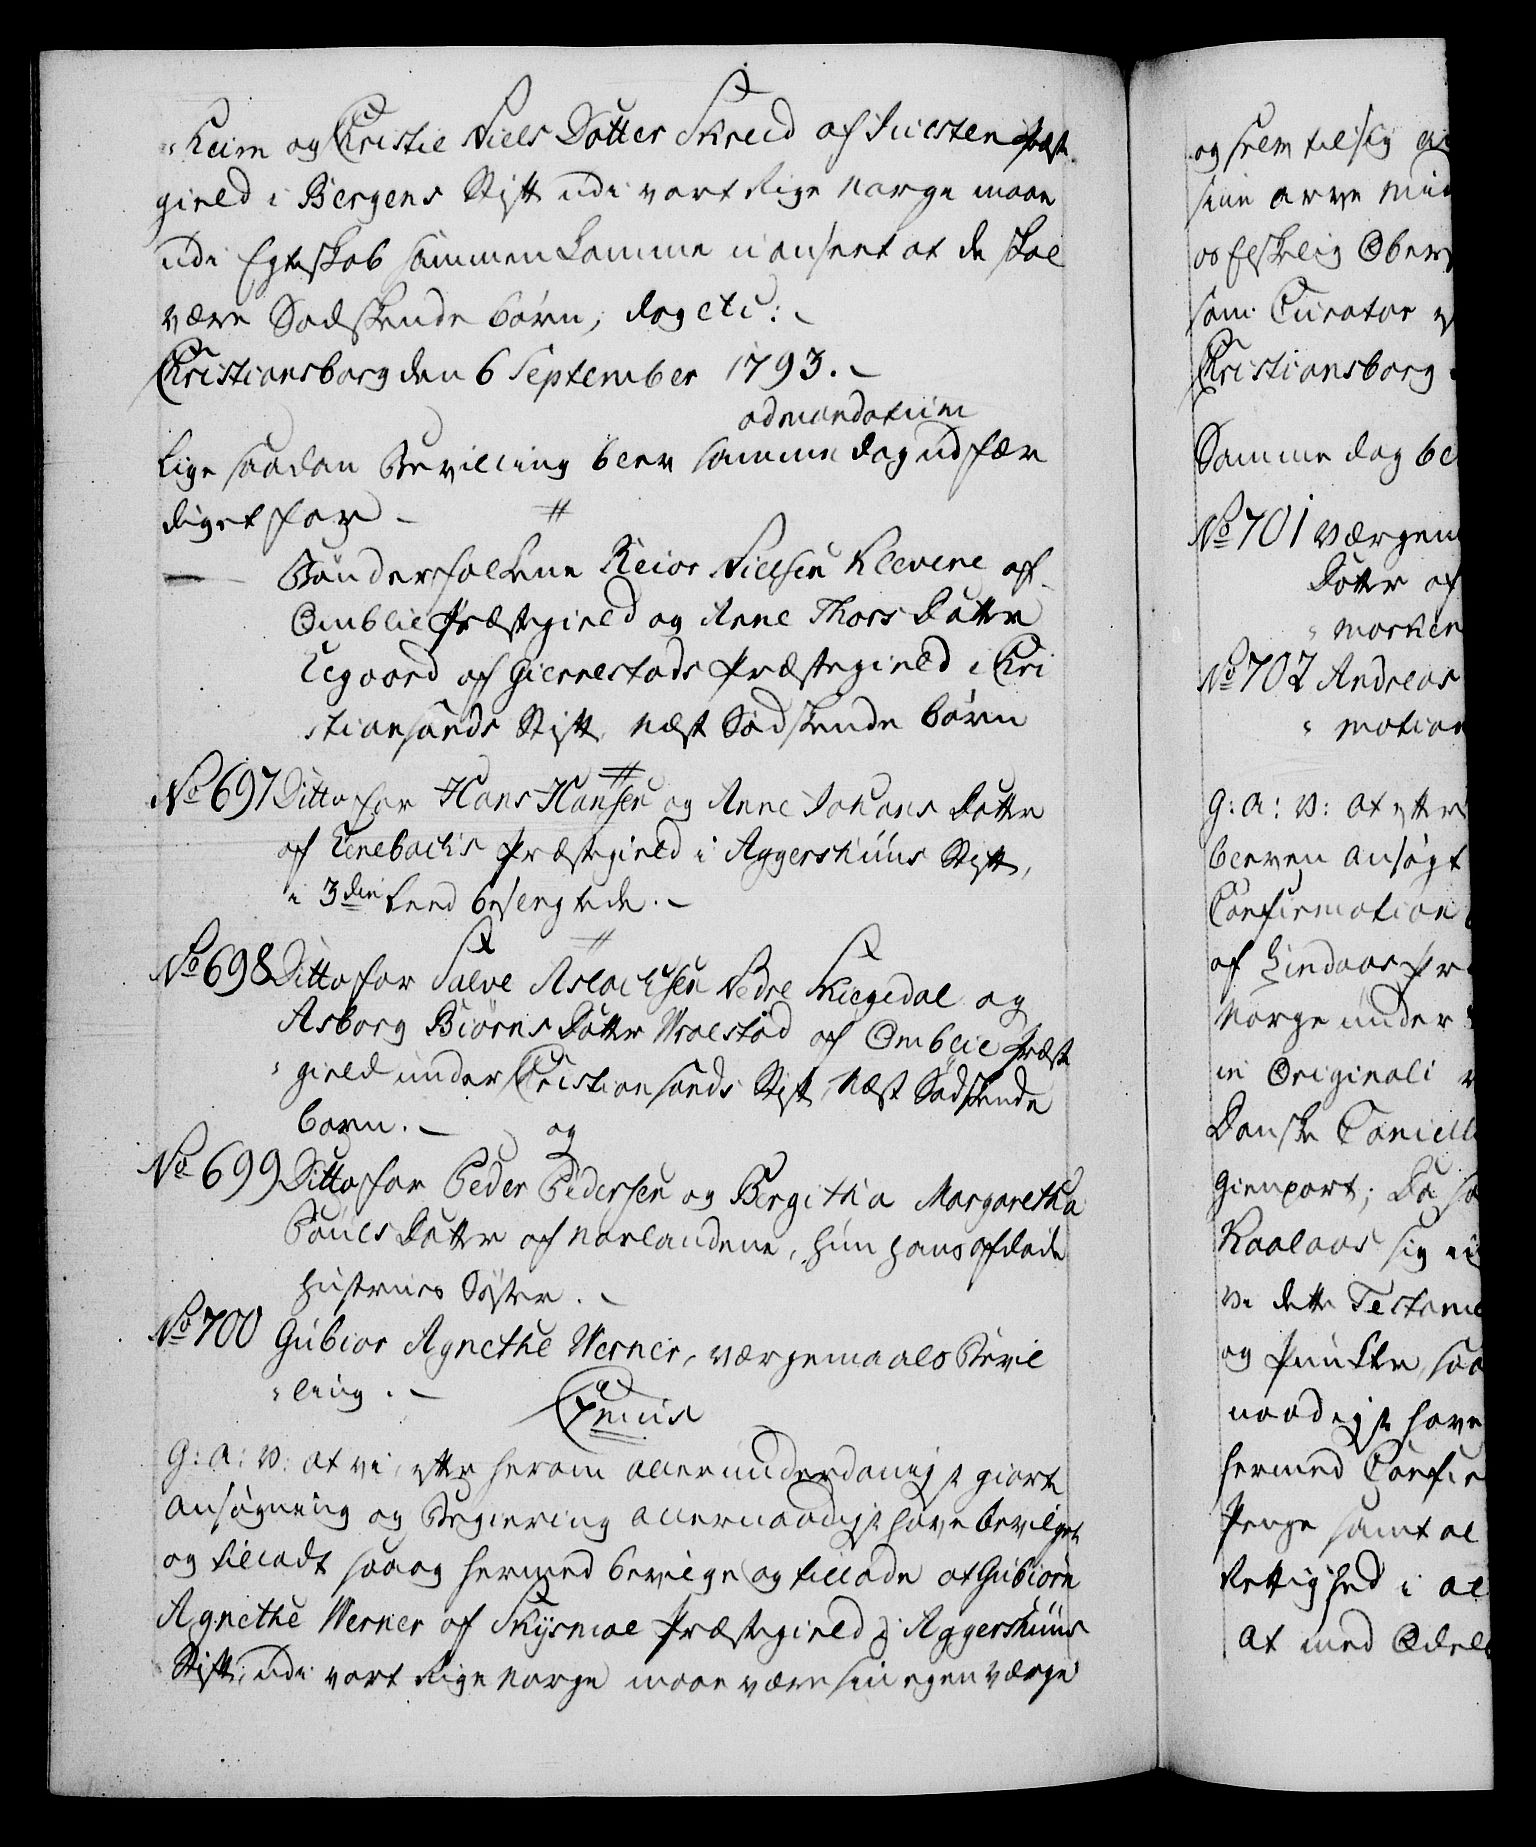 "heim og Christie Niels Dotter Skreed af Juesten Præste
gield i Bergens Stift udi vort Rige Norge maae
udi Egteskab sammenkomme uanseet at de skal
være Sødskende børn, dog etc: -
Christiansborg den 6 September 1793. -
ad mandatum
lige saadan Bevilling blev samme dag udfær
diget for -
Bønderfolkene Reior Nielsen Klevene af
Omblie Præstegield og Anne Thors Datter
Ugaard af Gierrestads Præstegield i Chri
stiansands Stift, Næst Sødskende børn
No 697 Ditto for Hans Hansen og Anne Johans Datter
af Enebachs Præstegield i Aggershuus Stift,
i 3die Leed besvogrede. -
No 698 Ditto for Salve Aslachsen Nedre Skiegedal og
Asborg Biørns Datter Wraelstad af Omblie Præste
"gield under Christiansands Stift, Næst Sødskende
børn. - og
No 699 Ditto for Peder Pedersen og Bergitha Margaretha
Pouls Datter af Norlandene, hun hans afdøde
hustrues Søster. -
No 700 Gubiør Agnethe Werner, værgemaals Bevil
"ling. -
Genus
G: A: V: at vi, efter herom allerunderdanigst giorte
Ansøgning og Begiering allernaadigst have bevilget
og tilladt saa og hermed bevilge og tillade at Gubiøre
Agnethe Werner af Skiysmoe Præstegield i Aggershuus
Stift, udi vort Rige Norge maae være sin egen Værge
og frem
sine arve Mid
som Curator
Christiansborg
Samme dag bl
No 701 Værgem
Datter af
No 702 Andreas
G: A: V: at efter
bleven ansøgt
Confirmation
af Lindaas Pr
Norge under
in Originali
Danske Cancelli
Gienpart; Da
sig
Vi dette Testame
og Puncter, saa
naadigst have
hermed Confir
Penge samt al
Rettighed i al
At med Odels